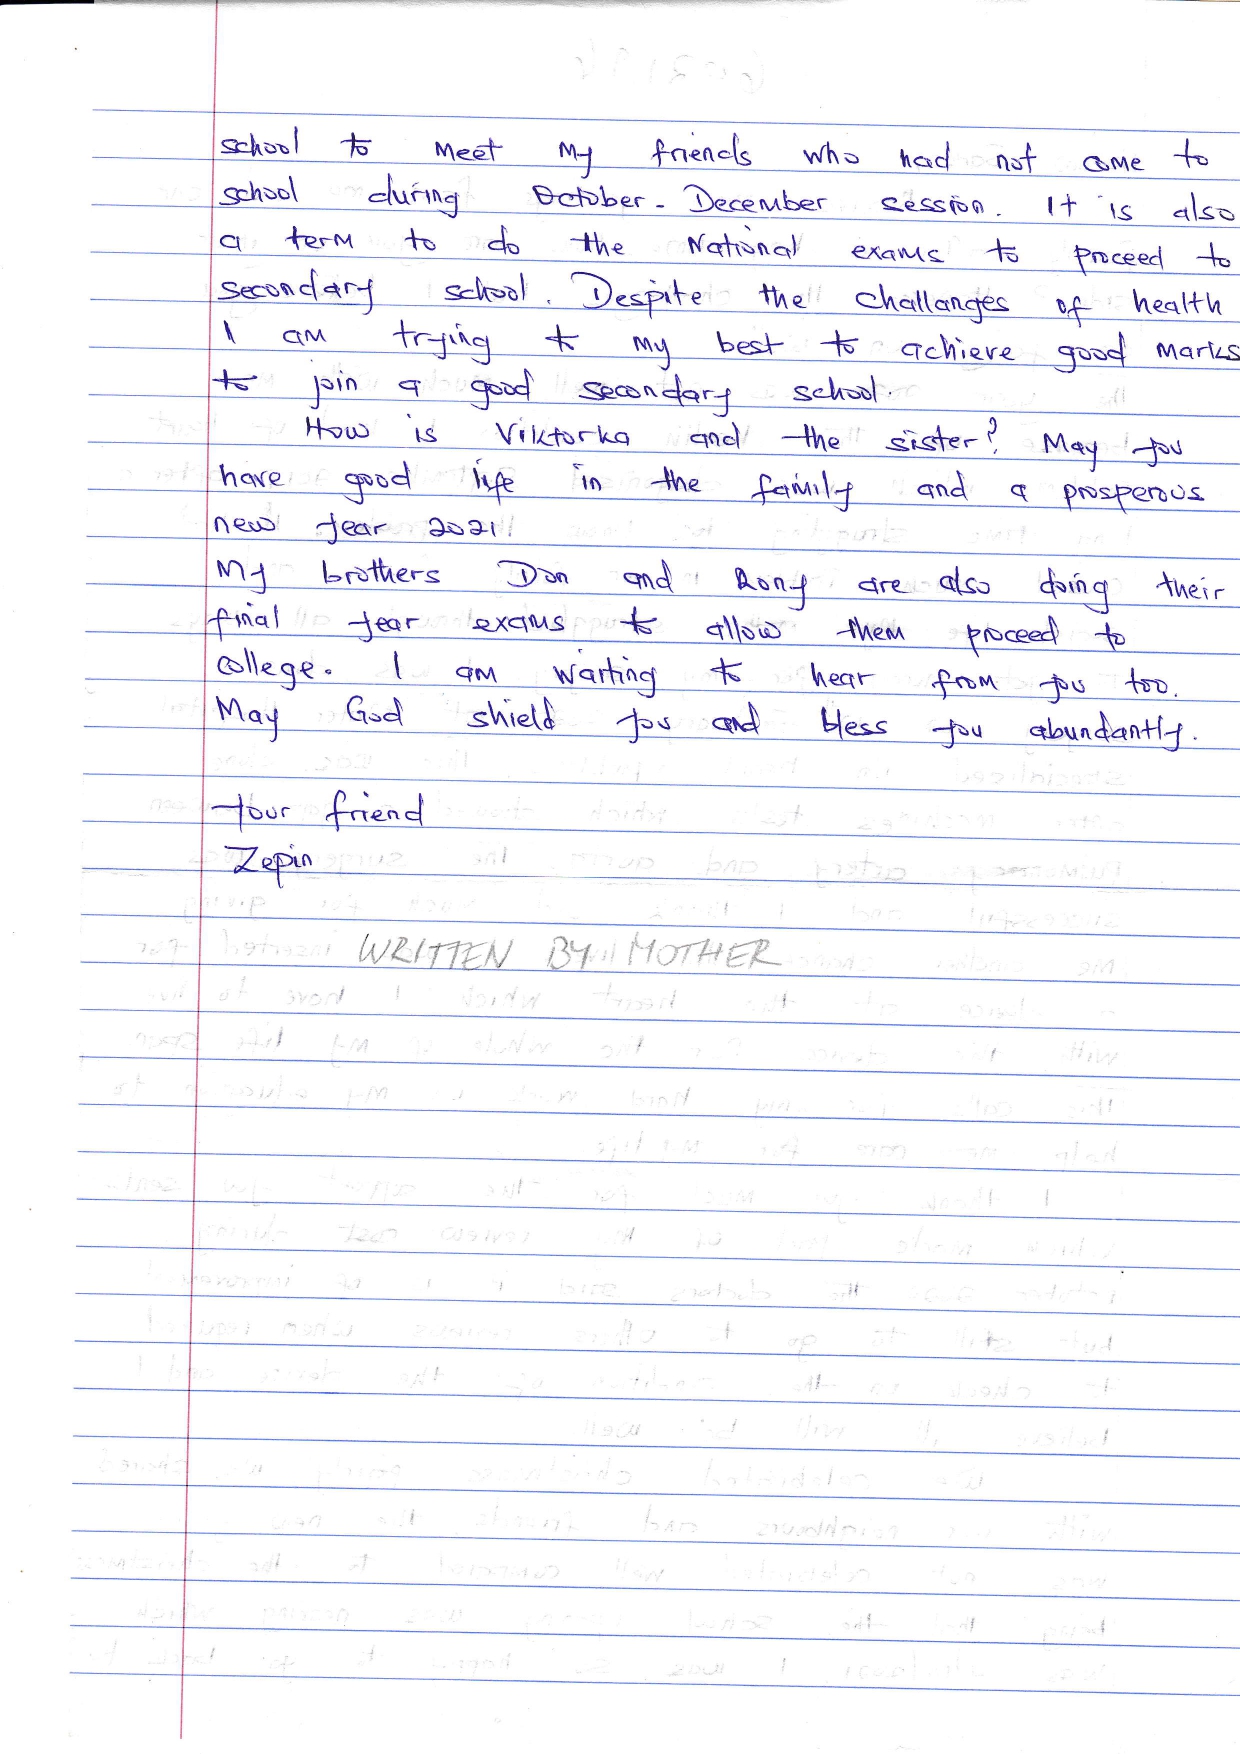 school to meet my friends who had not come to
school during October - December session. It is also
a term to do the National exams to proceed to
secondary school. Despite the challanges of health
I am trying to my best to achieve good marks
to join a good secondary school.
How is Viktorka and the sister? May you
have good life in the family and a prosperous
new year 2021
My brothers Don and Rony are also doing their
final year exams to allow them proceed to
college. I am waiting to hear from you too.
May God shield you and bless you abundantly.
Your friend
Zepin
WRITTEN BY MOTHER